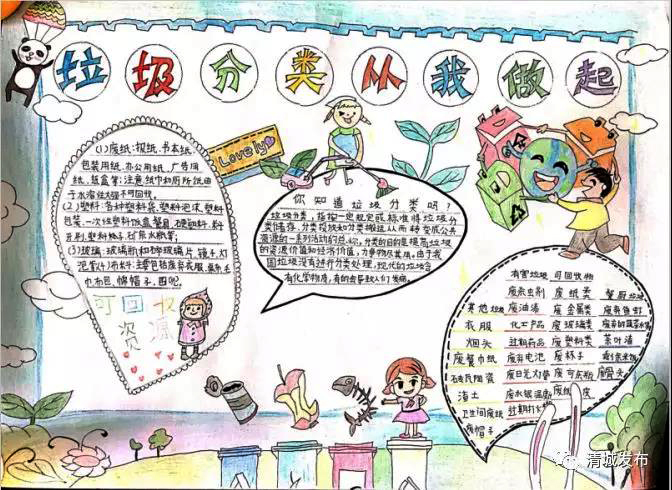 垃圾分类从我做起
Lovely
(1)废纸:报纸、书本纸、
包装用纸、办公用纸、广告用
纸、纸盒等;注意纸巾和厕所纸由
于水溶性太强不可回收。
(2)塑料:各种塑料袋、塑料泡沫、塑料
包装、一次性塑料饭盒餐具、硬塑料、塑料
牙刷、塑料杯子、矿泉水瓶等;
(3)玻璃:玻璃瓶和碎玻璃片、镜子、灯
可回收
资源
你知道垃圾分类吗?
垃圾分类,指按一定规定或标准将垃圾分
类储存、分类投放和分类搬运,从而转变成公共
资源的一系列活动的总称。分类的目的是提高垃圾
的资源价值和经济价值,力争物尽其用。由于我
国垃圾没有进行分类处理,现代的垃圾含
有化学物质,有的会导致人们发病。
有害垃圾 可回收物
餐厨垃圾
其他垃圾
废杀虫剂 废纸类
废油漆 废金属类
衣服 化工产品 废玻璃类
烟头 过期药品 废塑料类 茶叶渣
废餐巾纸 废弃电池 废杯子
砖瓦陶瓷 废日光灯管
渣土 废水银温
卫生间废纸
废帽子
清城发布